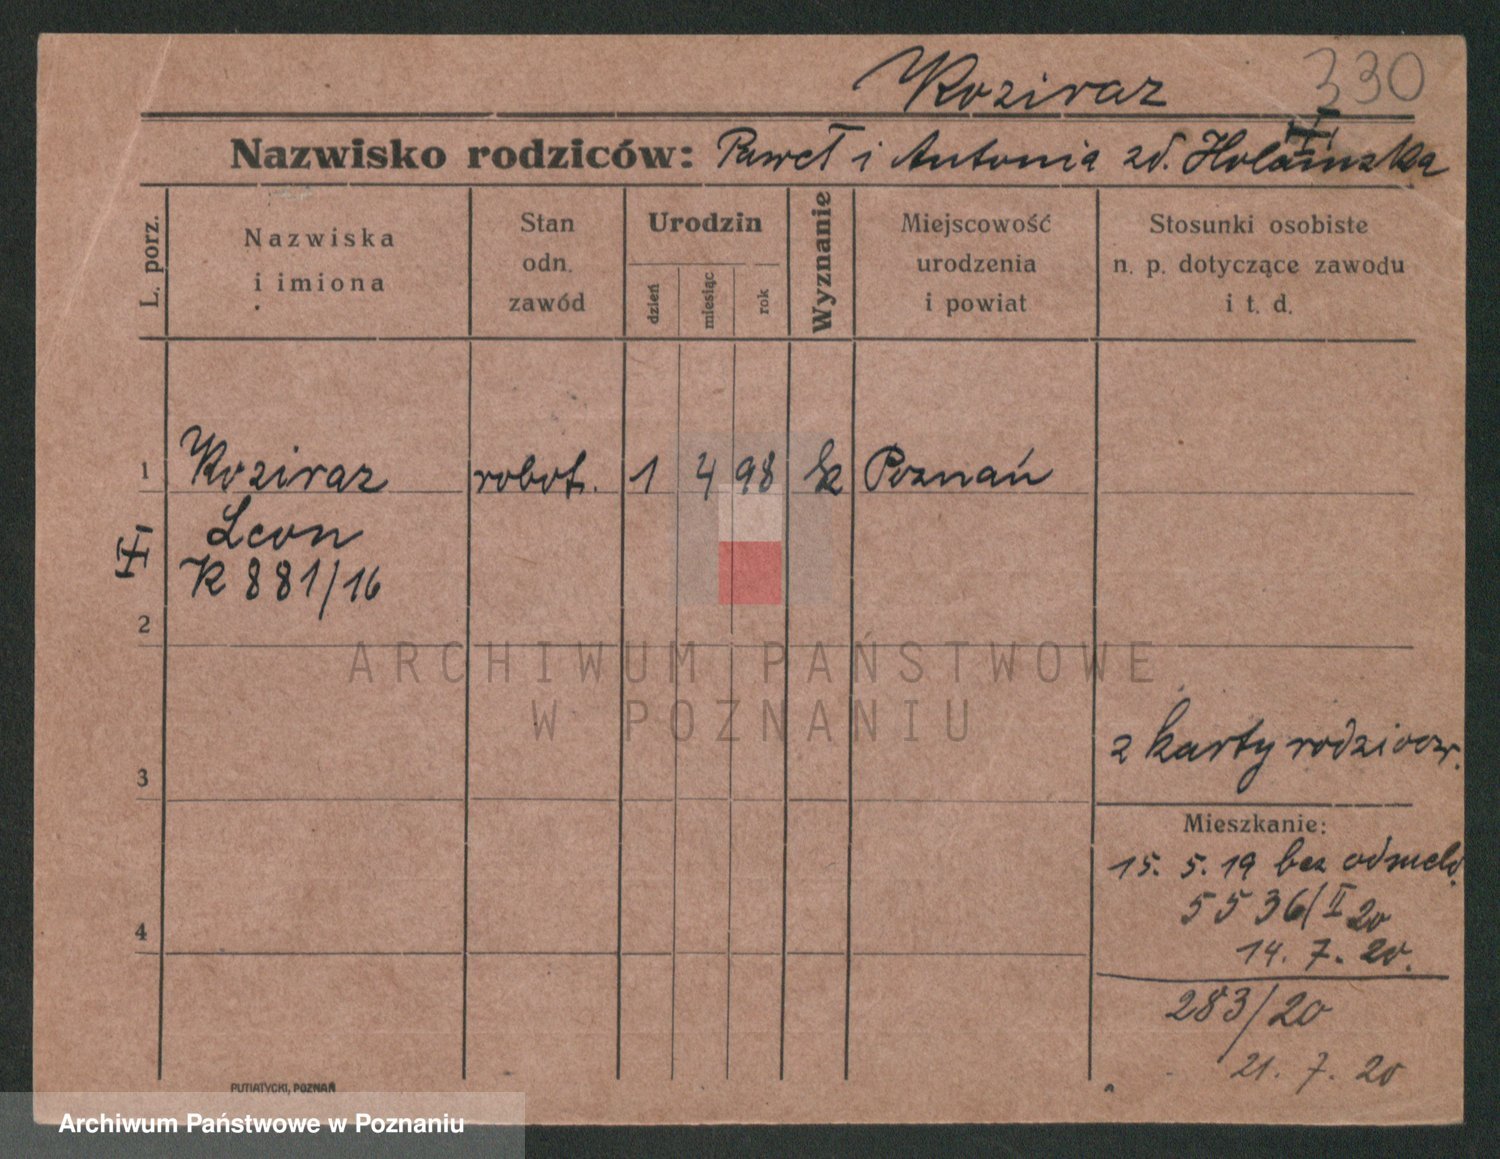 Koziraz
330
Nazwisko rodziców: Paweł i Antonia zd.
L. porz.
Nazwiska i imiona
Stan odn. zawód
Urodzin
dzień
miesiąc
rok
Wyznanie
Miejscowość urodzenia i powiat
Stosunki osobiste n. p. dotyczące zawodu i t. d.
1 Koziraz robot. 1 4 98 k Poznań
Leon
K 881/16
2
z karty rodzicow.
3
Mieszkanie:
15. 5. 19 bez odmeld.
5536/II 20
4
14. 7. 20.
283/20
21. 7. 20
PUTIATYCKI, POZNAŃ
ARCHIWUM PAŃSTWOWE
W POZNANIU
Archiwum Państwowe w Poznaniu